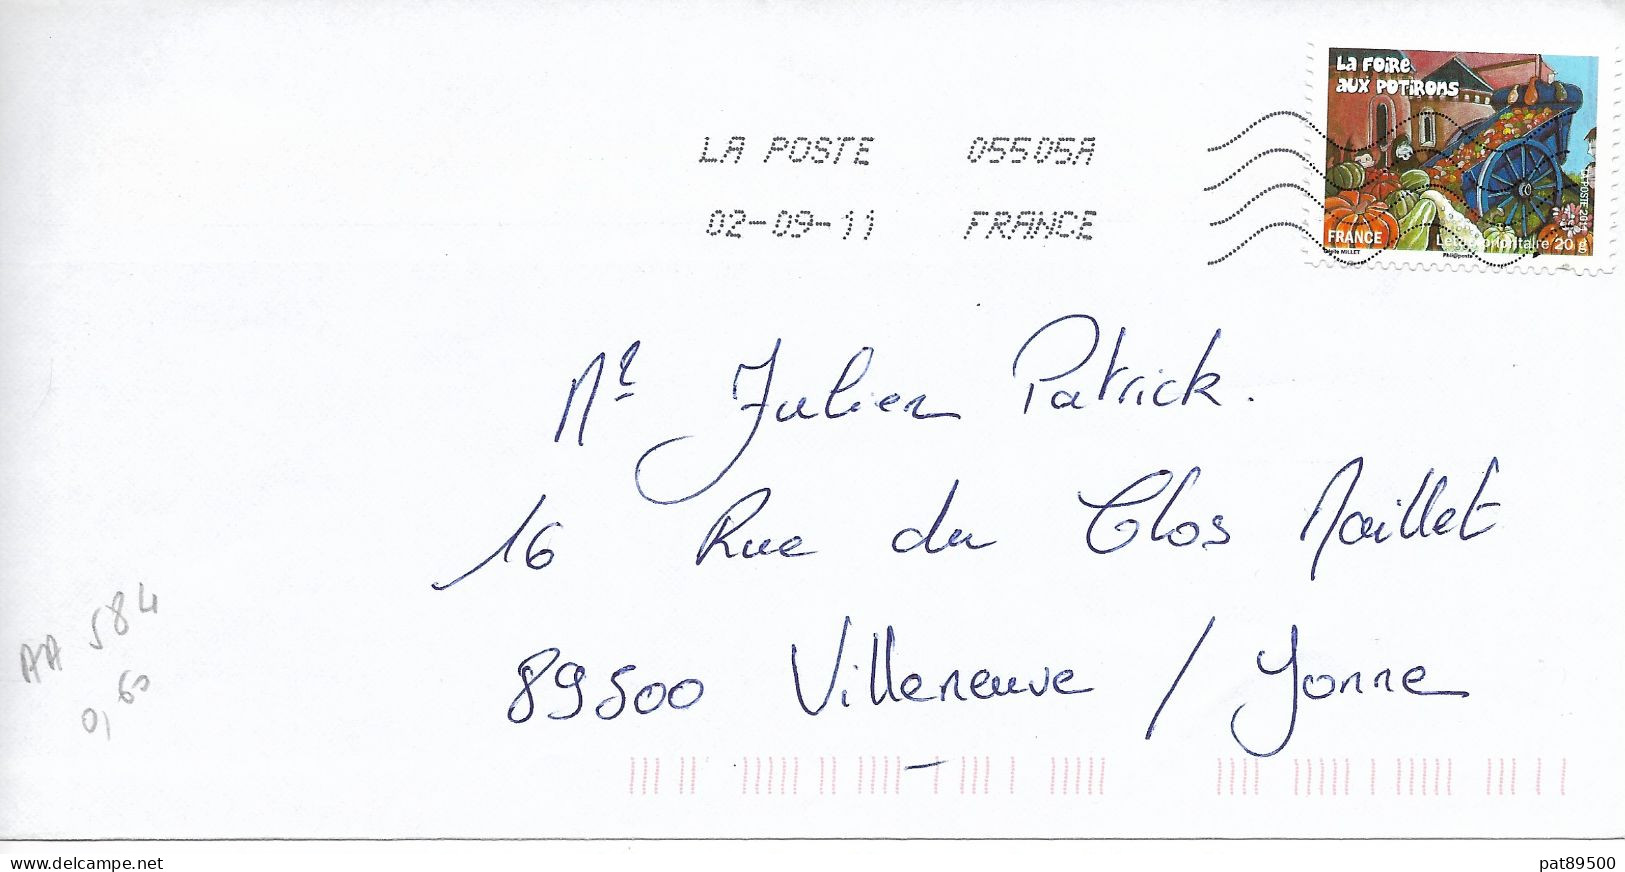 LA FOIRE
AUX POTIRONS
LA POSTE 05505A
02-09-11 FRANCE
LA POSTE 2011
FRANCE
Lettre prioritaire 20 g
MILLET
Phil@poste
Mr Julien Patrick.
16 Rue du Clos Maillet
89500 Villeneuve / Yonne
AA 584
0,60
www.delcampe.net
pat89500